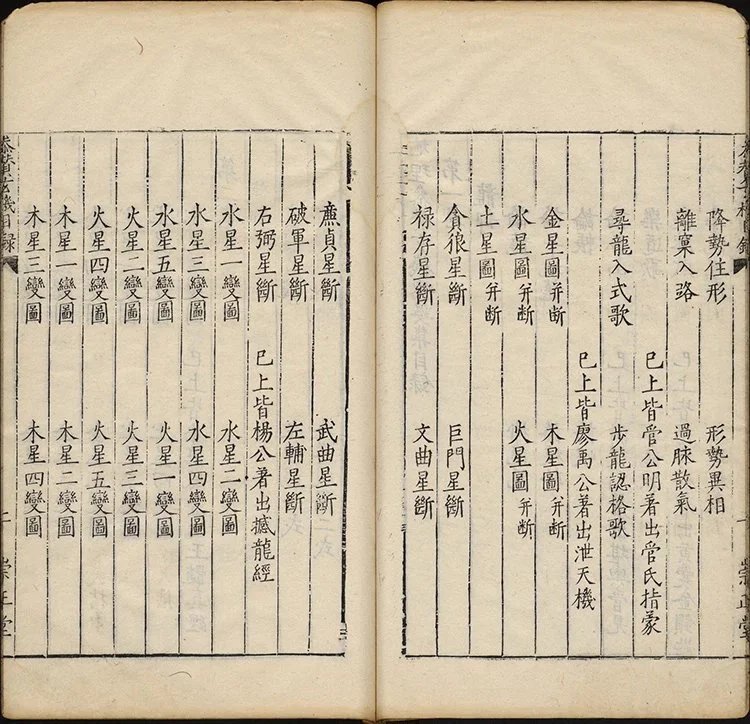 降勢住形　形勢異相
離窠入路　過脉散氣
已上皆管公明著出管氏指蒙
尋龍入式歌　步龍認格歌
已上皆廖禹公著出泄天機
金星圖并断　木星圖并断
水星圖并断　火星圖并断
土星圖并断
貪狼星斷　巨門星斷
禄存星斷　文曲星斷
廉貞星斷　武曲星斷
破軍星斷　左輔星斷
右弼星斷　已上皆楊公著出撼龍經
水星一變圖　水星二變圖
水星三變圖　水星四變圖
水星五變圖　火星一變圖
火星二變圖　火星三變圖
火星四變圖　火星五變圖
木星一變圖　木星二變圖
木星三變圖　木星四變圖
目錄　崇正堂